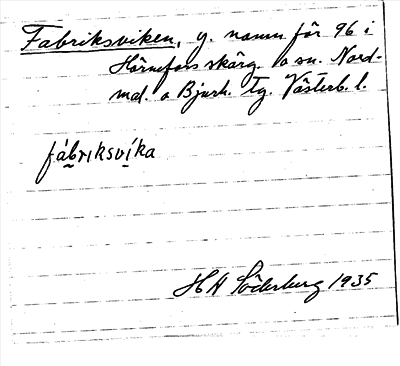 Fabriksviken, y. namn för 96 i
Hörnefors skärg. o sn. Nord-
mal. o Bjurh. tg. Västerb. l.
fábriksvíka
H A Söderburg 1935